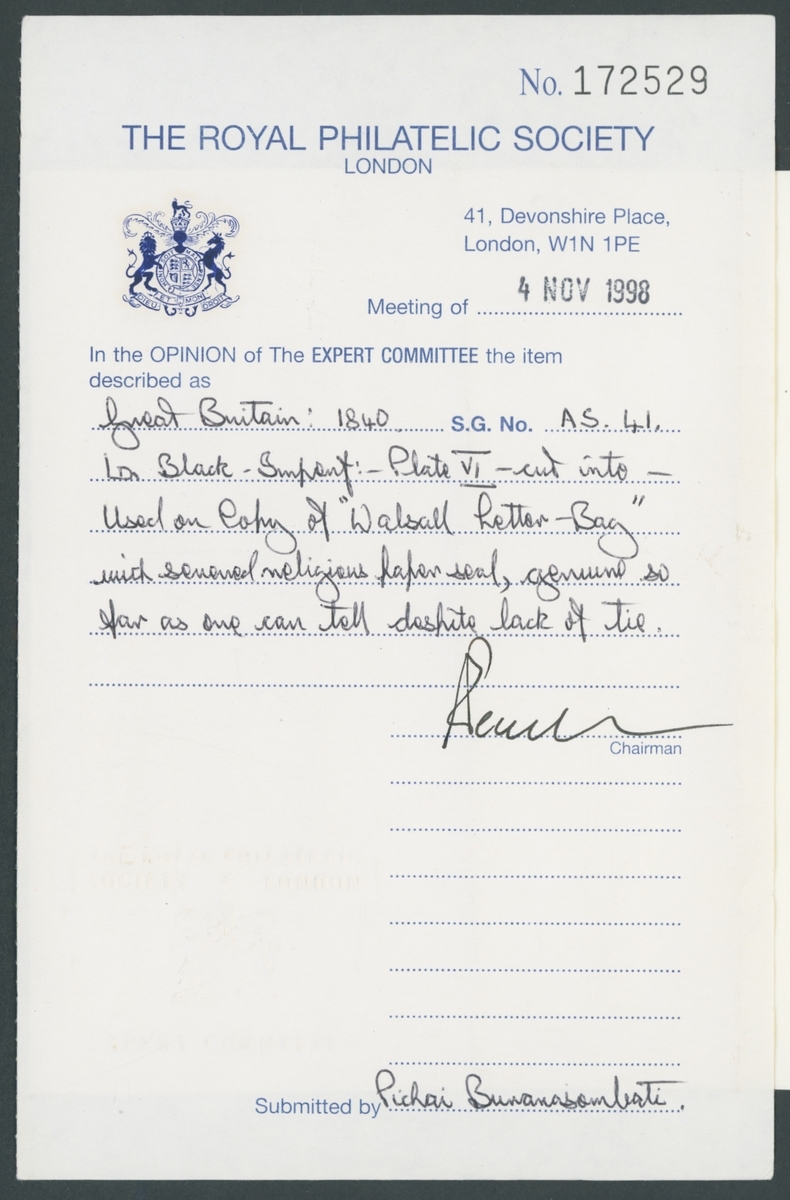 No. 172529
THE ROYAL PHILATELIC SOCIETY
LONDON
41, Devonshire Place,
London, W1N 1PE
Meeting of 4 NOV 1998
In the OPINION of The EXPERT COMMITTEE the item
described as
Great Britain: 1840. S.G. No. AS. 41.
1d Black - Imperf:- Plate VI - cut into -
Used on Copy of "Walsall Letter-Bag"
with severed religious paper seal, genuine so
far as one can tell despite lack of tie.
Chairman
Submitted by Pichai Buranasombati.